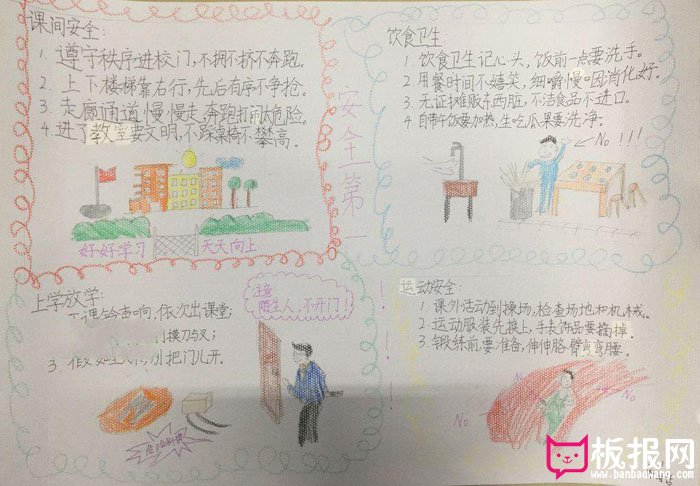 课间安全:
1. 遵守秩序进校门,不拥不挤不奔跑.
2. 上下楼梯靠右行,先后有序不争抢。
3. 走廊通道慢慢走,奔跑打闹太危险。
4. 进了教室要文明,不踩桌椅不攀高。
好好学习 天天向上
安全第一
饮食卫生:
1. 饮食卫生记心头,饭前一点要洗手。
2. 用餐时间不嬉笑,细嚼慢咽消化好.
3. 无证摊贩东西脏,不洁食品不进口。
4. 自带午饭要加热,生吃瓜果要洗净。
No!!!
上学放学:
一课铃声响,依次出课堂;
摸刀与叉;
3. 把门儿开.
注意
陌生人,不开门!
!
!
运动安全:
1. 课外活动到操场,检查场地和机械.
2. 运动服装先换上,手表饰品要摘掉
3. 锻练前要准备,伸伸胳臂弯弯腰。
No
No
No
板报网
www.banbaowang.com